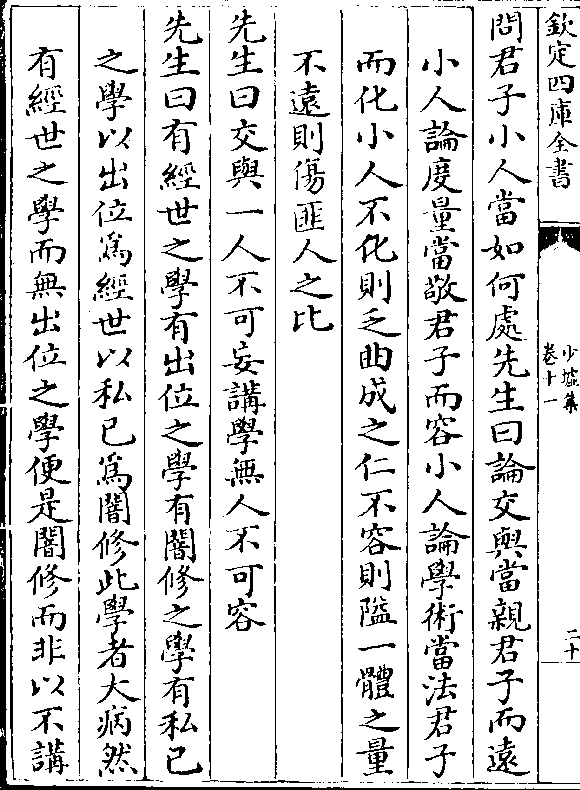 欽定四庫全書
少墟集
卷十一
二十
問君子小人當如何處先生曰論交與當親君子而遠
小人論度量當敬君子而容小人論學術當法君子
而化小人不化則乏曲成之仁不容則隘一體之量
不遠則傷匪人之比
先生曰交與一人不可妄講學無人不可容
先生曰有經世之學有出位之學有闇修之學有私已
之學以出位爲經世以私已爲闇修此學者大病然
有經世之學而無出位之學便是闇修而非以不講